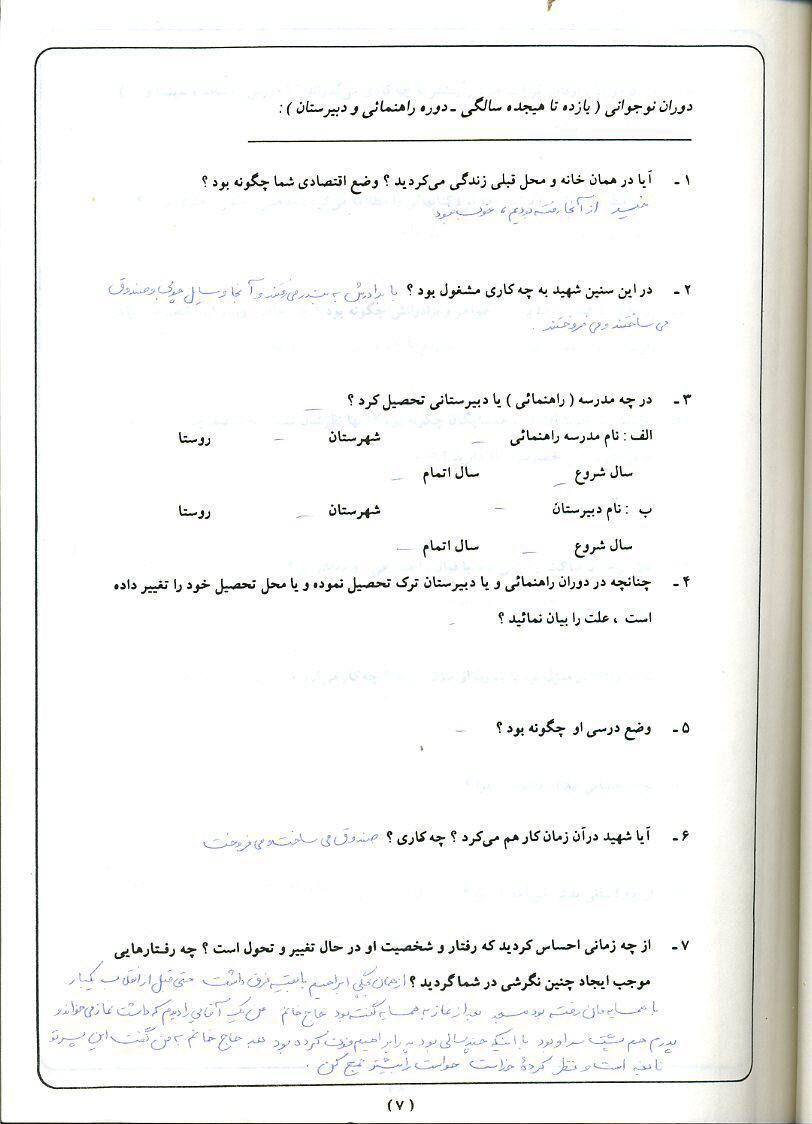 دوران نوجوانی ( یازده تا هیجده سالگی ـ دوره راهنمائی و دبیرستان ) :
۱ـ آیا در همان خانه و محل قبلی زندگی می‌کردید ؟ وضع اقتصادی شما چگونه بود ؟
از آنجا رفته بودیم ، خوب بود
۲ـ در این سنین شهید به چه کاری مشغول بود ؟ با برادرش به بندر می رفتند و آنجا وسایل چوبی و صندوق
می ساختند و می فروختند .
۳ـ در چه مدرسه ( راهنمائی ) یا دبیرستانی تحصیل کرد ؟ –
الف : نام مدرسه راهنمائی – شهرستان – روستا
سال شروع – سال اتمام –
ب : نام دبیرستان – شهرستان – روستا
سال شروع – سال اتمام –
۴ـ چنانچه در دوران راهنمائی و یا دبیرستان ترک تحصیل نموده و یا محل تحصیل خود را تغییر داده
است ، علت را بیان نمائید ؟ –
۵ـ وضع درسی او چگونه بود ؟ –
۶ـ آیا شهید درآن زمان کار هم می‌کرد ؟ چه کاری ؟ صندوق می ساخت و می فروخت
۷ـ از چه زمانی احساس کردید که رفتار و شخصیت او در حال تغییر و تحول است ؟ چه رفتارهایی
موجب ایجاد چنین نگرشی در شما گردید ؟ از همان بچگی ابراهیم با بقیه فرق داشت حتی قبل از انقلاب یکبار
با همسایه مان رفته بود مسجد بعد از نماز به همسایه گفته بود حاج خانم من یک آقایی را دیدم که داشت نماز می خواند و
پدرم هم پشت سر او بود با اینکه چند سالی بود پدر ابراهیم فوت کرده بود بعد حاج خانم به من گفت این پسر تو
نابغه است و نظر کردۀ خداست حواست را بیشتر جمع کن .
( ۷ )